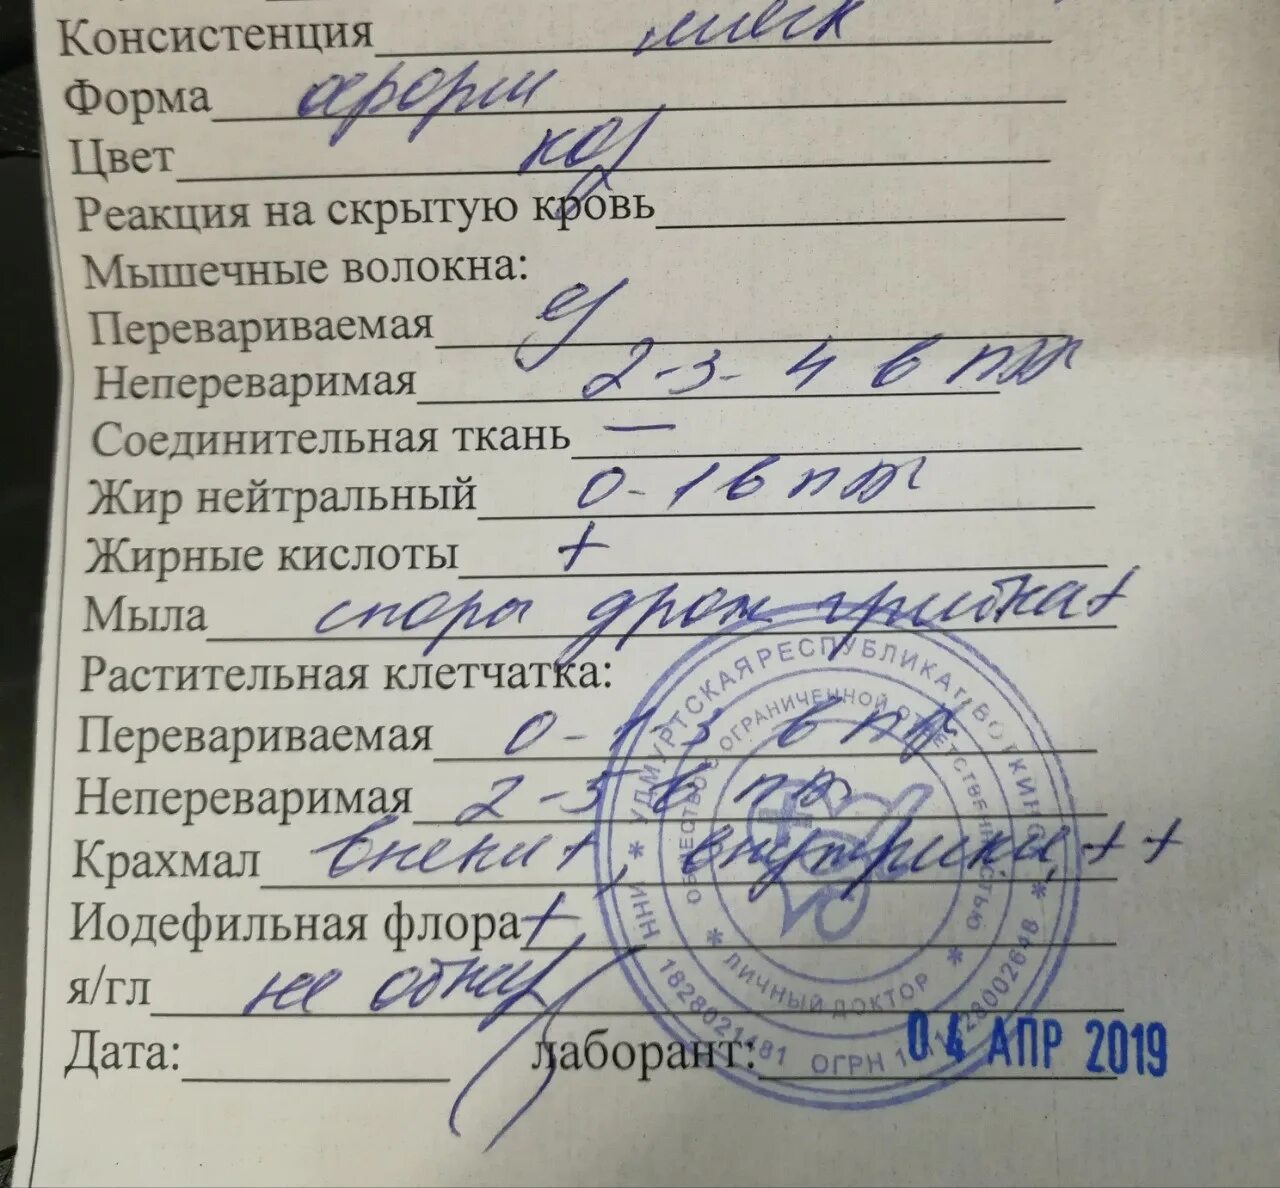 Консистенция мягк
Форма оформ
Цвет кор
Реакция на скрытую кровь
Мышечные волокна:
Перевариваемая ед
Непереваримая 2-3-4 в п/зр
Соединительная ткань —
Жир нейтральный 0-1 в п/зр
Жирные кислоты +
Мыла споры дрож грибка +
Растительная клетчатка:
Перевариваемая 0-1-3 в п/зр
Непереваримая 2-3 в п/зр
Крахмал внекл +, внутрикл, ++
Иодефильная флора +
я/гл не обнар
Дата: лаборант:
04 АПР 2019
* УДМУРТСКАЯ РЕСПУБЛИКА г. ВОТКИНСК *
ИНН 1828021481 ОГРН
ОБЩЕСТВО С ОГРАНИЧЕННОЙ ОТВЕТСТВЕННОСТЬЮ
* ЛИЧНЫЙ ДОКТОР *